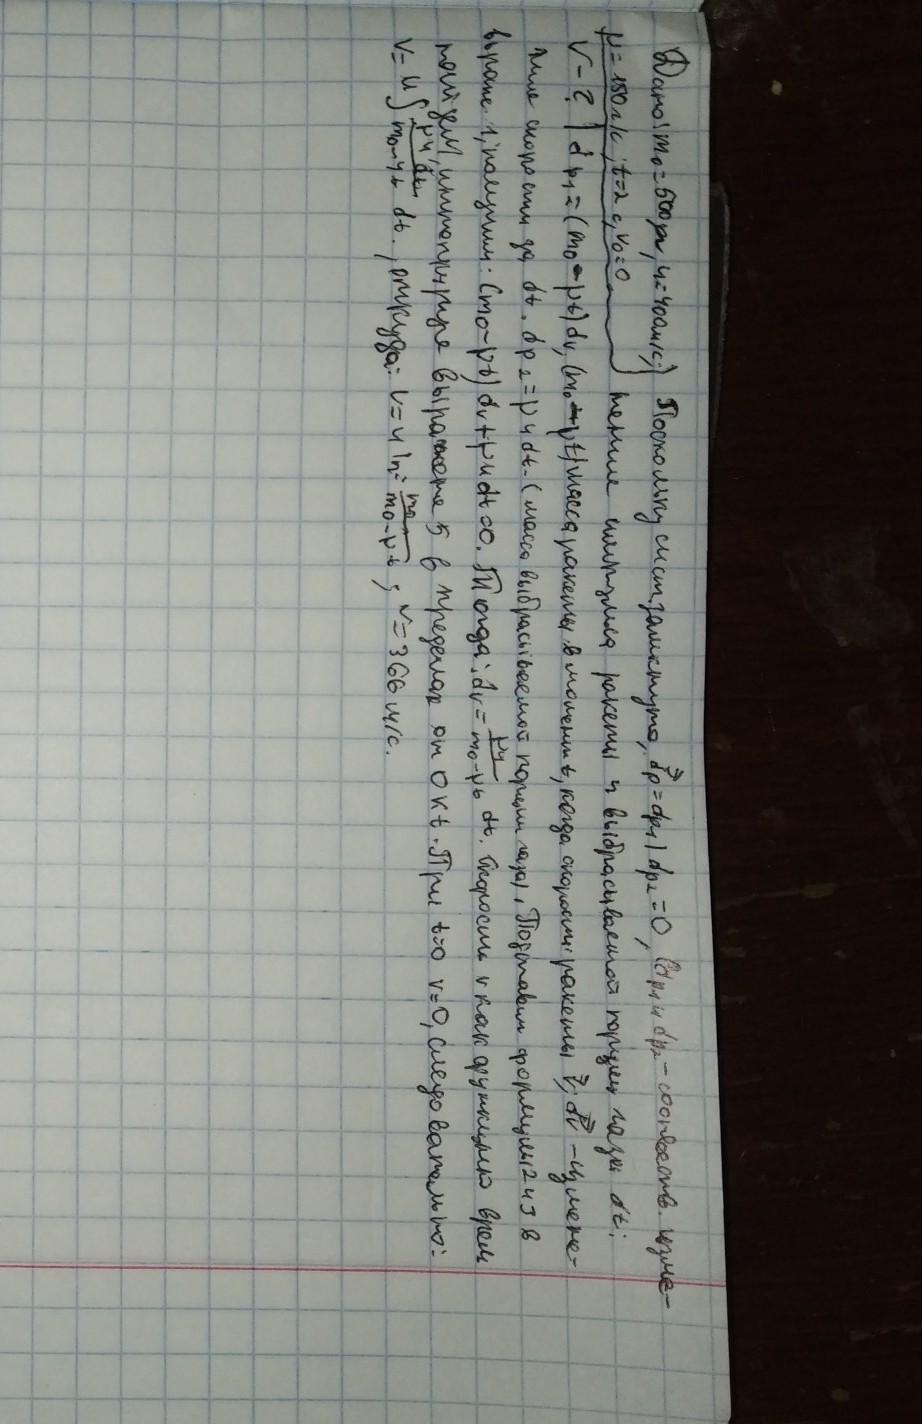 Дано: m₀=500гр, u=400м/с; Поскольку сист. замкнута, dp⃗=dp₁|dp₂=0, (dp₁ и dp₂ – соответств. изме-
μ=150г/с; t=2 с, v₀=0 нение импульса ракеты и выбрасываемой порции газа dt;
V-? | dp₁=(m₀-μt)dv, (m₀-μt) масса ракеты в момент t, когда скорость ракеты v⃗; dv⃗ – измене-
ние скорости за dt. dp₂=μudt. (масса выбрасываемой порции газа). Подставим формулы 2 и 3 в
выраже. 1, получим: (m₀-μt)dv+μudt=0. Тогда: dv= μu/(m₀-μt) dt. Скорость v как функцию врем
найдем, интегрируя выражение 5 в пределах от 0 к t. При t=0 v=0, следовательно:
v=u∫ μu/(m₀-ut) dt., откуда: v=u ln= m₀/(m₀-μt) ; v=366 м/с.